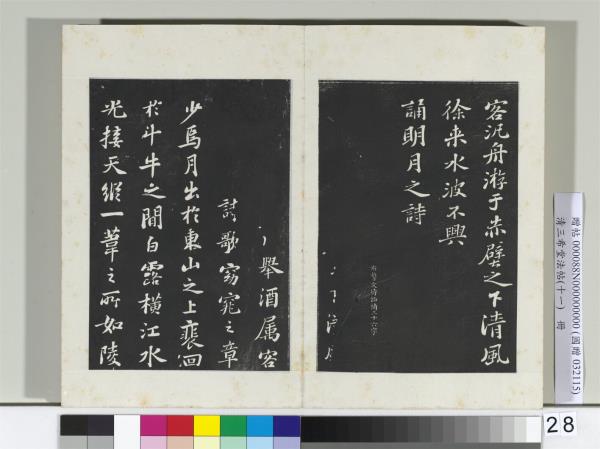 客汎舟游于赤壁之下清風
徐来水波不興
誦明月之詩
舉酒属客
歌窈窕之章
少焉月出於東山之上裵回
於斗牛之間白露橫江水
光接天縱一葦之所如陵
贈帖 000088N000000000 (國贈 032115)
清三希堂法帖(十一) 冊
28